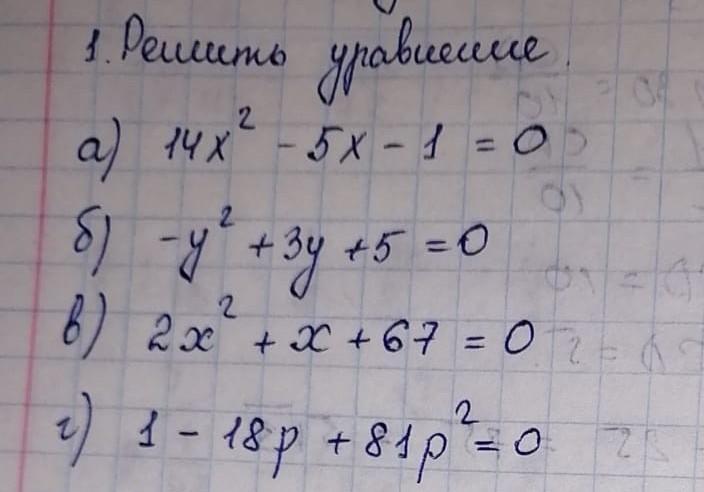 1. Решить уравнение.
а) 14x² - 5x - 1 = 0
б) -y² + 3y + 5 = 0
в) 2x² + x + 67 = 0
г) 1 - 18p + 81p² = 0